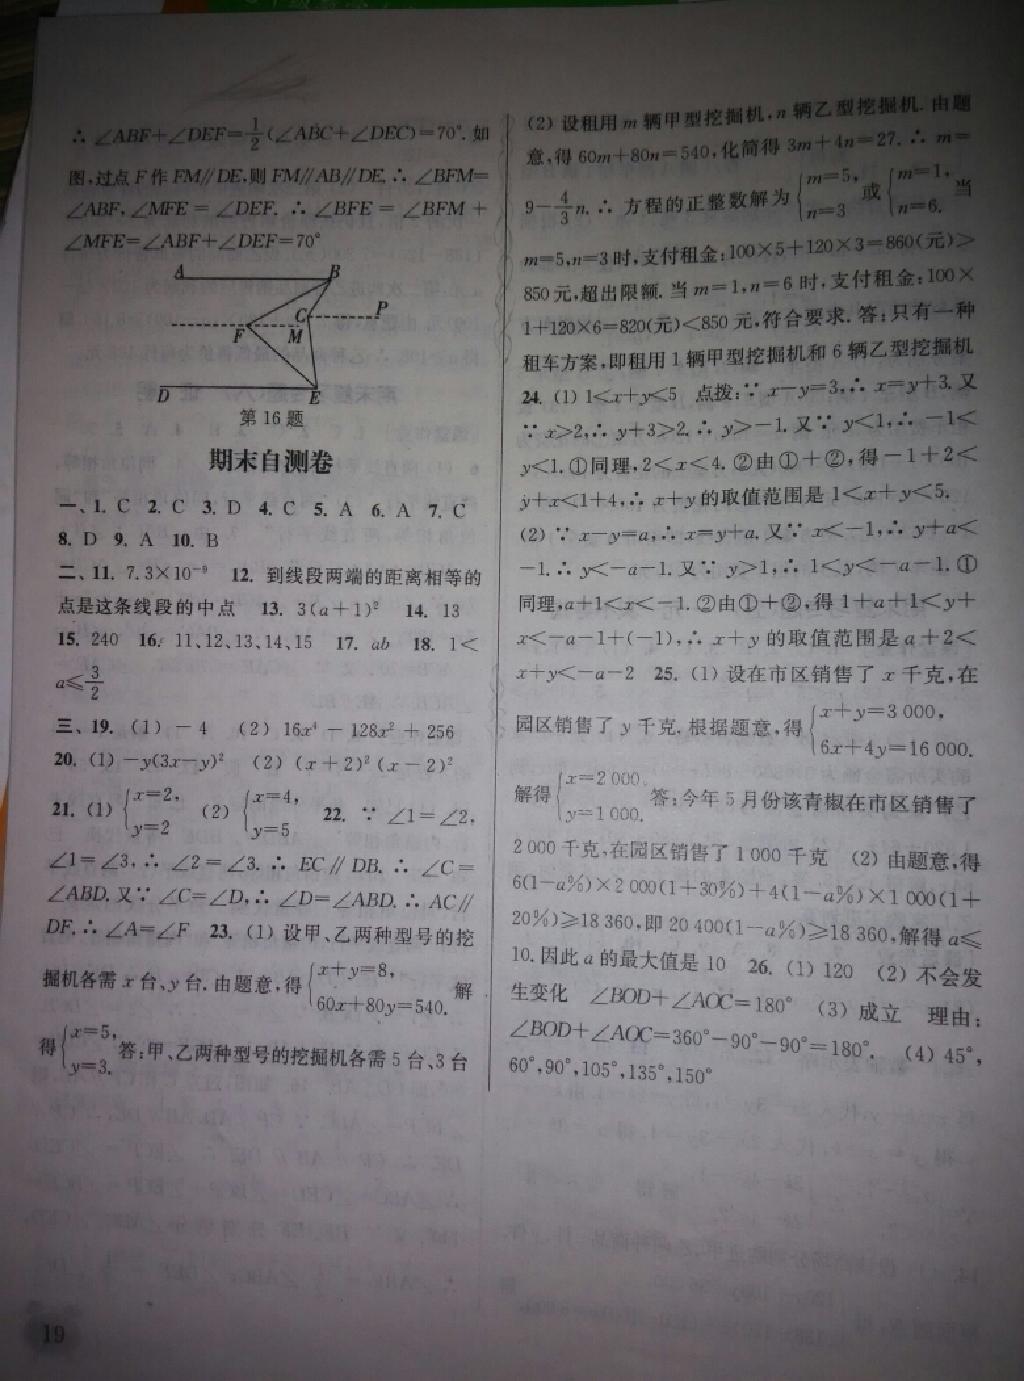 ∴ ∠ABF+∠DEF=1/2(∠ABC+∠DEC)=70°. 如
图,过点 F 作 FM∥DE,则 FM∥AB∥DE, ∴ ∠BFM=
∠ABF, ∠MFE = ∠DEF. ∴ ∠BFE = ∠BFM +
∠MFE=∠ABF+∠DEF=70°
A B
C P
F M
D E
第 16 题
期末自测卷
一、1. C 2. C 3. D 4. C 5. A 6. A 7. C
8. D 9. A 10. B
二、11. 7.3×10⁻⁹ 12. 到线段两端的距离相等的
点是这条线段的中点 13. 3(a+1)² 14. 13
15. 240 16. 11、12、13、14、15 17. ab 18. 1<
a≤3/2
三、19. (1) -4 (2) 16x⁴ - 128x² + 256
20. (1) -y(3x-y)² (2) (x+2)²(x-2)²
21. (1) {x=2, y=2 (2) {x=4, y=5 22. ∵ ∠1=∠2,
∠1=∠3, ∴ ∠2=∠3. ∴ EC∥DB. ∴ ∠C=
∠ABD. 又∵ ∠C=∠D, ∴ ∠D=∠ABD. ∴ AC∥
DF. ∴ ∠A=∠F 23. (1) 设甲、乙两种型号的挖
掘机各需 x 台、y 台. 由题意,得{x+y=8, 60x+80y=540. 解
得{x=5, y=3. 答:甲、乙两种型号的挖掘机各需 5 台、3 台
(2) 设租用 m 辆甲型挖掘机,n 辆乙型挖掘机. 由题
意,得 60m+80n=540,化简得 3m+4n=27. ∴ m=
9-4/3n. ∴ 方程的正整数解为{m=5, n=3 或{m=1, n=6. 当
m=5,n=3 时,支付租金:100×5+120×3=860(元)>
850 元,超出限额. 当 m=1,n=6 时,支付租金:100×
1+120×6=820(元)<850 元,符合要求. 答:只有一种
租车方案,即租用 1 辆甲型挖掘机和 6 辆乙型挖掘机
24. (1) 1<x+y<5 点拨:∵ x-y=3, ∴ x=y+3. 又
∵ x>2, ∴ y+3>2. ∴ y>-1. 又∵ y<1, ∴ -1<
y<1. ①同理,2<x<4. ②由①+②,得 -1+2<
y+x<1+4, ∴ x+y 的取值范围是 1<x+y<5.
(2) ∵ x-y=a, ∴ x=y+a. 又∵ x<-1, ∴ y+a<
-1. ∴ y<-a-1. 又∵ y>1, ∴ 1<y<-a-1. ①
同理,a+1<x<-1. ②由①+②,得 1+a+1<y+
x<-a-1+(-1), ∴ x+y 的取值范围是 a+2<
x+y<-a-2 25. (1) 设在市区销售了 x 千克,在
园区销售了 y 千克. 根据题意,得{x+y=3 000, 6x+4y=16 000.
解得{x=2 000, y=1 000. 答:今年 5 月份该青椒在市区销售了
2 000 千克,在园区销售了 1 000 千克 (2) 由题意,得
6(1-a%)×2 000(1+30%)+4(1-a%)×1 000(1+
20%)≥18 360,即 20 400(1-a%)≥18 360,解得 a≤
10. 因此 a 的最大值是 10 26. (1) 120 (2) 不会发
生变化 ∠BOD+∠AOC=180° (3) 成立 理由:
∠BOD+∠AOC=360°-90°-90°=180°. (4) 45°,
60°,90°,105°,135°,150°
19